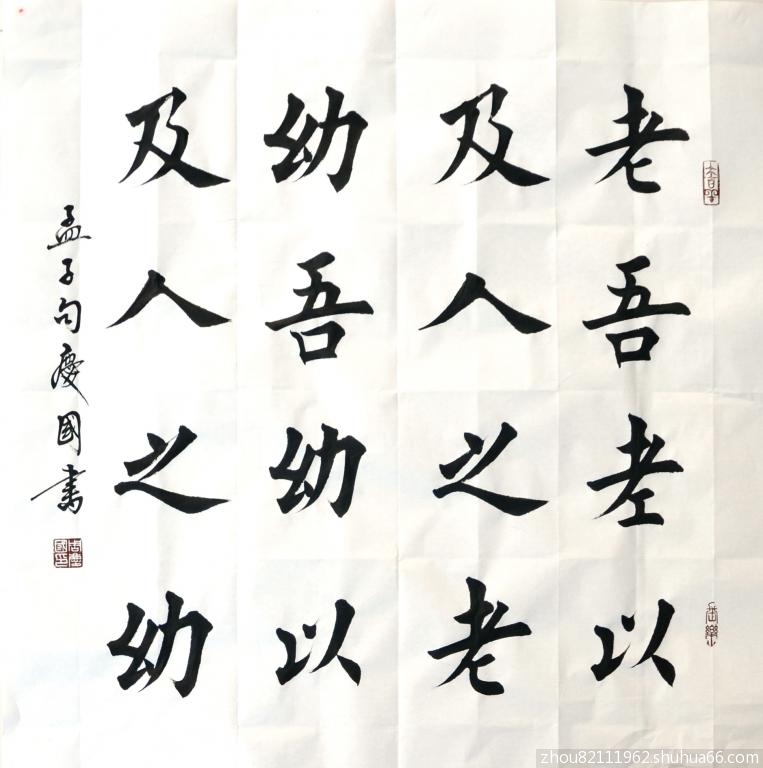 老吾老以
及人之老
幼吾幼以
及人之幼
孟子句慶國書
周慶國印
zhou82111962.shuhua66.com